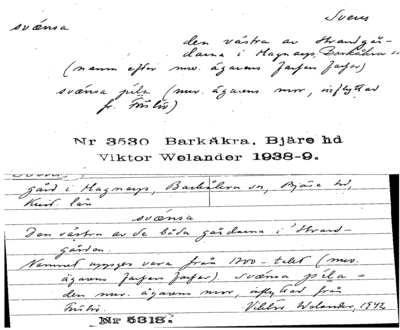 Svens
svänsa
den västra av Strandgår-
darna i Magnarp, Barkåkra sn
(namn efter nuv. ägarens farfars farfar)
svänsa pila (nuv. ägarens mor, inflyttad
fr.
Nr 3530 Barkåkra, Bjäre hd
Viktor Welander 1938-9.
gård i Magnarp, Barkåkra sn, Bjäre hd,
Krist. län
svänsa
Den västra av de båda gårdarna i Strand-
gården.
Namnet uppges vara från 1700-talet (nuv.
ägarens farfars farfar) svänsa pila =
den nuv. ägarens mor, inflyttad från
Viktor Welander, 1942
Nr 5318.